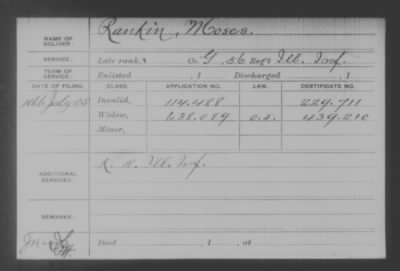 NAME OF SOLDIER: Rankin, Moses.
SERVICE: Late rank, Co. G, 56 Reg't Ill. Inf.
TERM OF SERVICE: Enlisted , 1 Discharged , 1
DATE OF FILING. CLASS. APPLICATION NO. LAW. CERTIFICATE NO.
July 25 Invalid, 114.488 229.711
Widow, 638.089 439.210
Minor,
ADDITIONAL SERVICES: K. Ill. Inf.
REMARKS:
Died , 1 , at